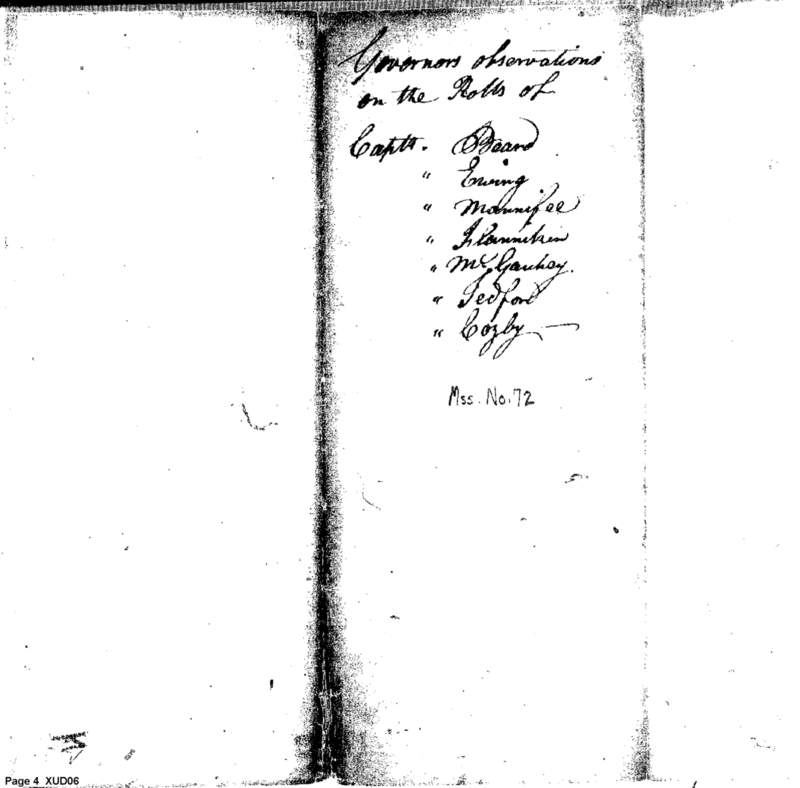 Governors observations
on the Rolls of
Captn. Beard
" Ewing
" Mannifee
" Flannikin
" McGaukey.
" Tedford
" Cozby
Mss. No. 72
Page 4 XUD06